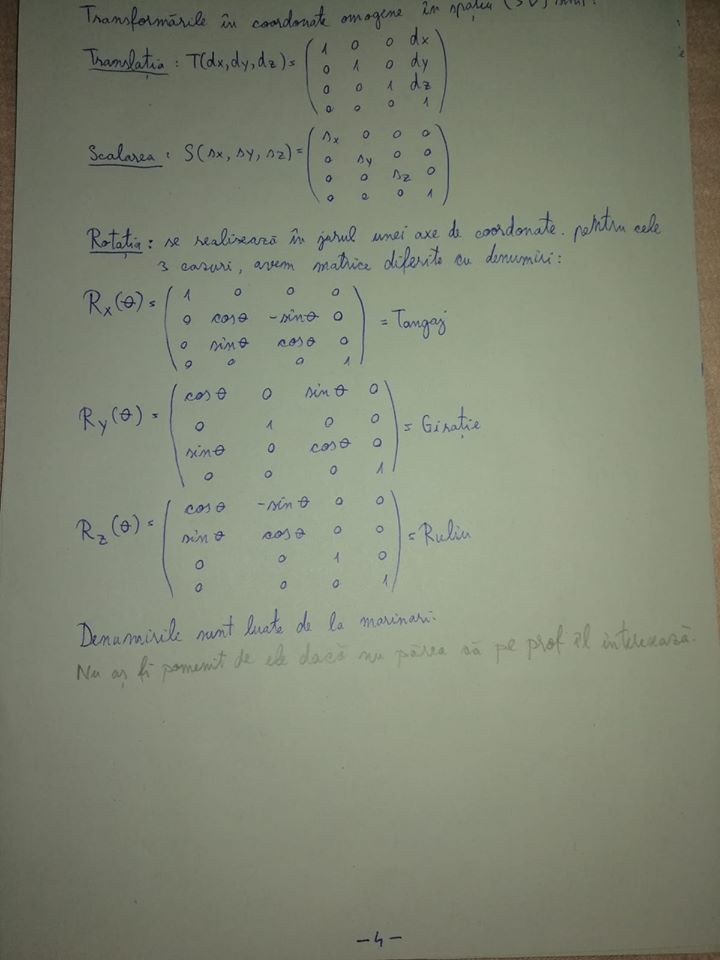 Transformările în coordonate omogene în spațiu (3D) sunt:
Translația : T(dx,dy,dz)= ( 1 0 0 dx
0 1 0 dy
0 0 1 dz
0 0 0 1 )
Scalarea : S(sx, sy, sz)= ( sx 0 0 0
0 sy 0 0
0 0 sz 0
0 0 0 1 )
Rotația : se realizează în jurul unei axe de coordonate. pentru cele
3 cazuri, avem matrice diferite cu denumiri:
Rx(θ)= ( 1 0 0 0
0 cosθ -sinθ 0
0 sinθ cosθ 0
0 0 0 1 ) = Tangaj
Ry(θ) = ( cosθ 0 sinθ 0
0 1 0 0
sinθ 0 cosθ 0
0 0 0 1 ) = Girație
Rz(θ)= ( cosθ -sinθ 0 0
sinθ cosθ 0 0
0 0 1 0
0 0 0 1 ) = Ruliu
Denumirile sunt luate de la marinari.
Nu aș fi pomenit de ele dacă nu părea că pe prof îl interesează.
-4-